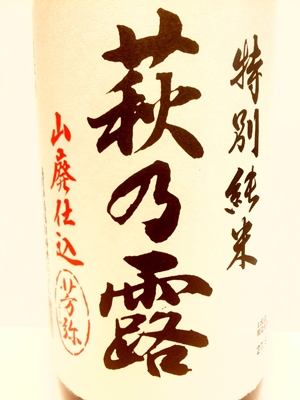 特別純米
萩乃露
山廃仕込
芳弥